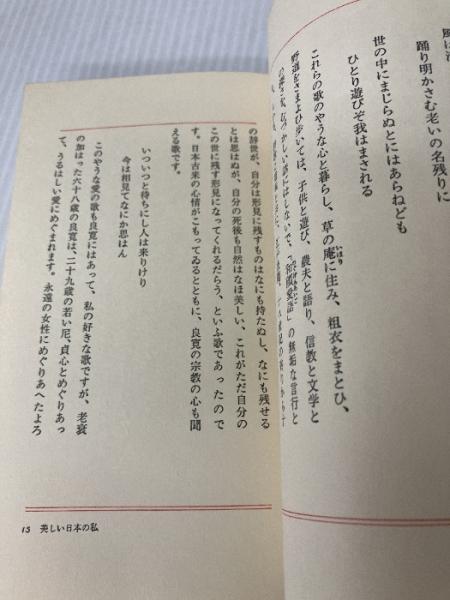 踊り明かさむ老いの名残りに
世の中にまじらぬとにはあらねども
ひとり遊びぞ我はまされる
これらの歌のやうな心と暮らし、草の庵に住み、粗衣をまとひ、
野道をさまよひ歩いては、子供と遊び、農夫と語り、信教と文学と
の深さを、むづかしい話にはしないで、「和顔愛語」の無垢な言行と
の辞世が、自分は形見に残すものはなにも持たぬし、なにも残せる
とは思はぬが、自分の死後も自然はなほ美しい、これがただ自分の
この世に残す形見になつてくれるだらう、といふ歌であつたので
す。日本古来の心情がこもつてゐるとともに、良寛の宗教の心も聞
える歌です。
いついつと待ちにし人は来りけり
今は相見てなにか思はん
このやうな愛の歌も良寛にはあつて、私の好きな歌ですが、老衰
の加はつた六十八歳の良寛は、二十九歳の若い尼、貞心とめぐりあつ
て、うるはしい愛にめぐまれます。永遠の女性にめぐりあへたよろ
15 美しい日本の私